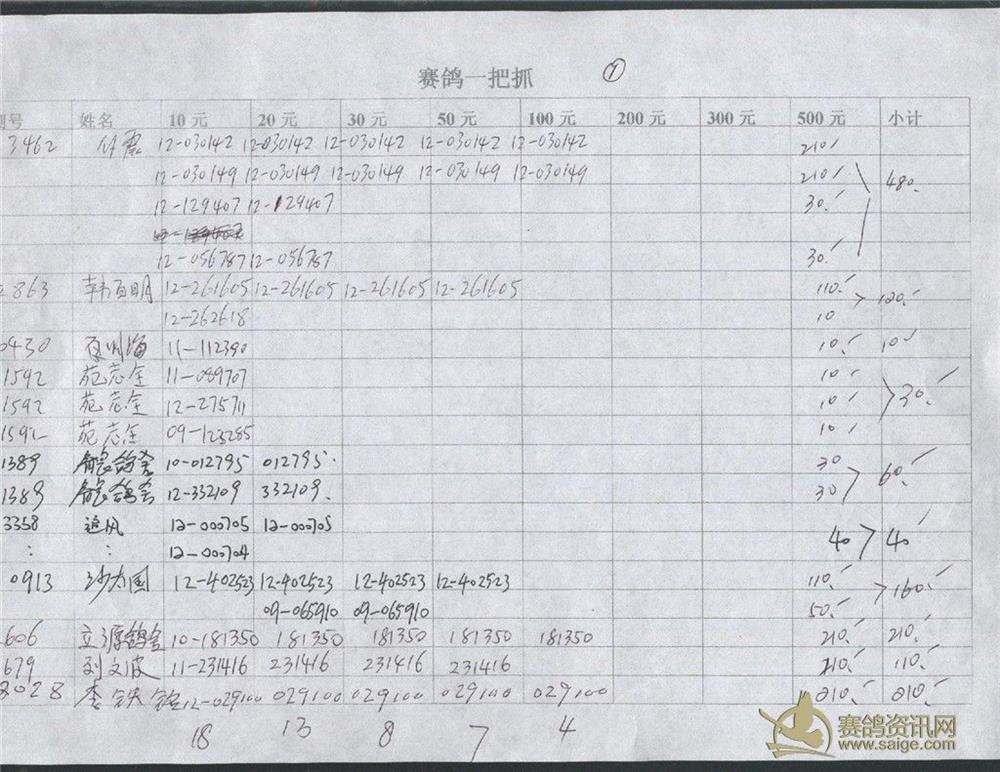 赛鸽一把抓 ①
号 姓名 10元 20元 30元 50元 100元 200元 300元 500元 小计
3462 付震 12-030142 12-030142 12-030142 12-030142 12-030142 210
12-030149 12-030149 12-030149 12-030149 12-030149 210 480.
12-129407 12-129407 30.
12-056787 12-056787 30.
2863 韩百明 12-261605 12-261605 12-261605 12-261605 110. 120.
12-262618 10
0430 11-112390 10. 10
1592 苑志全 11-089707 10
1592 苑志全 12-275711 10 30.
1592 苑志全 09-123285 10
1389 鸽舍 10-012795 012795. 30 60.
1389 鸽舍 12-332109 332109. 30
3358 追风 12-000705 12-000705 40 40
: : 12-000704
0913 沙为国 12-402523 12-402523 12-402523 12-402523 110. 160.
09-065910 09-065910 50.
606 立源鸽舍 10-181350 181350 181350 181350 181350 210. 210.
679 刘文波 11-231416 231416 231416 231416 210. 110.
2028 李铁铭 12-029100 029100 029100 029100 029100 210. 210.
18 13 8 7 4
赛鸽资讯网
www.saige.com